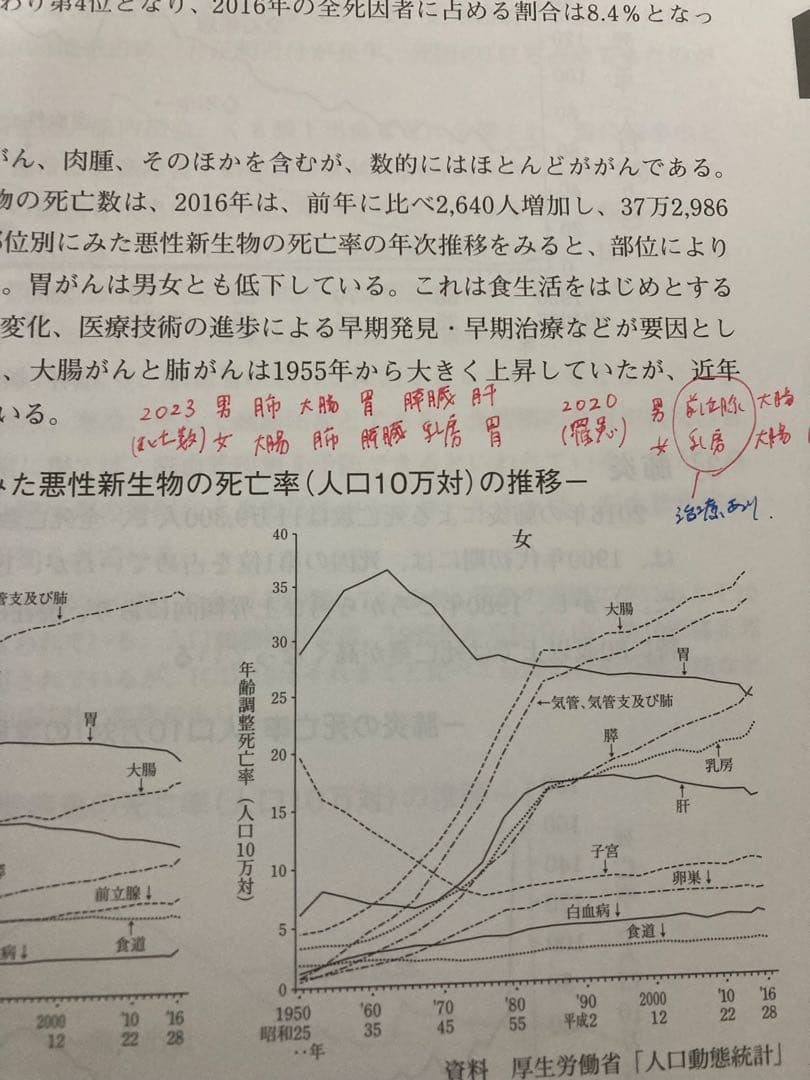 わり第4位となり、2016年の全死因者に占める割合は8.4％となっ
がん、肉腫、そのほかを含むが、数的にはほとんどががんである。
物の死亡数は、2016年は、前年に比べ2,640人増加し、37万2,986
部位別にみた悪性新生物の死亡率の年次推移をみると、部位により
。胃がんは男女とも低下している。これは食生活をはじめとする
変化、医療技術の進歩による早期発見・早期治療などが要因とし
、大腸がんと肺がんは1955年から大きく上昇していたが、近年
いる。
2023 男 肺 大腸 胃 膵臓 肝
(死亡数) 女 大腸 肺 膵臓 乳房 胃
2020 男 前立腺 大腸
(罹患) 女 乳房 大腸
治療あり.
みた悪性新生物の死亡率(人口10万対)の推移－
管支及び肺
胃
大腸
前立腺
食道
病
2000 '10 '16
12 22 28
女
年齢調整死亡率（人口10万対）
40
35
30
25
20
15
10
5
0
大腸
胃
気管、気管支及び肺
膵
乳房
肝
子宮
卵巣
白血病
食道
1950 '60 '70 '80 '90 2000 '10 '16
昭和25 35 45 55 平成2 12 22 28
‥年
資料 厚生労働省「人口動態統計」